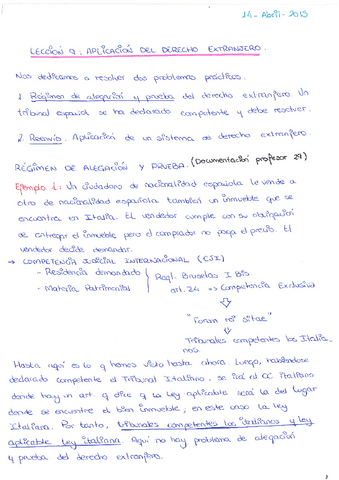 14 - Abril - 2015
LECCIÓN 9 : APLICACIÓN DEL DERECHO EXTRANJERO.
Nos dedicamos a resolver dos problemas prácticos.
1. Régimen de alegación y prueba del derecho extranjero. Un
tribunal español se ha declarado competente y debe resolver.
2. Reenvío. Aplicación de un sistema de derecho extranjero.
RÉGIMEN DE ALEGACIÓN Y PRUEBA. (Documentación profesor 29)
Ejemplo 1: Un ciudadano de nacionalidad española le vende a
otro de nacionalidad española también un inmueble que se
encuentra en Italia. El vendedor cumple con su obligación
de entregar el inmueble pero el comprador no paga el precio. El
vendedor decide demandar.
→ COMPETENCIA JUDICIAL INTERNACIONAL (CJI)
- Residencia demandado
- Materia Patrimonial
Regl. Bruselas I Bis
art. 24 => Competencia Exclusiva
"Forum rei sitae"
Tribunales competentes los Italia_
nos.
Hasta aquí es lo q hemos visto hasta ahora. Luego, habiéndose
declarado competente el Tribunal Italiano, se irá al CC italiano
donde hay un art. q dice q la Ley aplicable será la del lugar
donde se encuentre el bien inmueble; en este caso la Ley
Italiana. Por tanto, tribunales competentes los italianos y ley
aplicable ley italiana. Aquí no hay problema de alegación
y prueba del derecho extranjero.